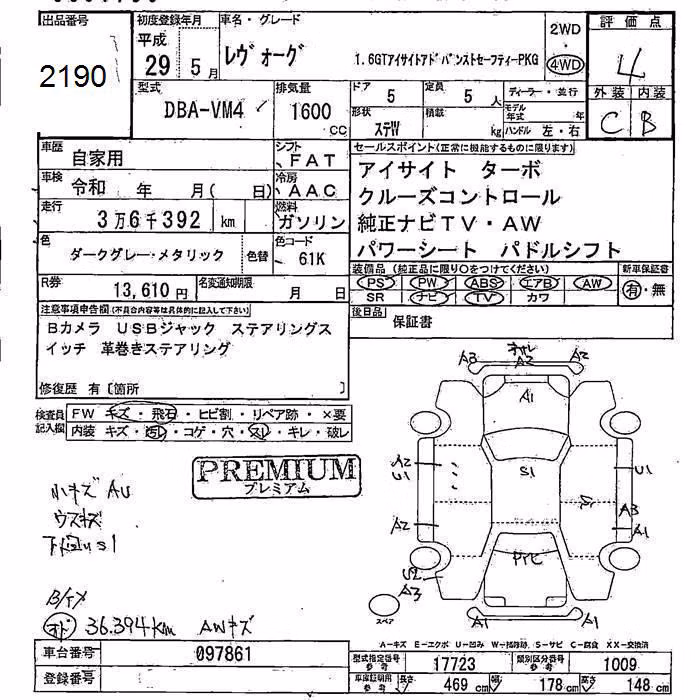 出品番号
2190
初度登録年月
平成
29 5 月
車名・グレード
レヴォーグ
1.6GTアイサイトアドバンストセーフティーPKG
2WD
4WD
評価点
4
外装 内装
C B
型式
DBA-VM4
排気量
1600
CC
ドア
5
定員
5 人
ディーラー・並行
形状
ステW
積載
kg
モデル
年式 年
ハンドル 左・右
車歴
自家用
シフト
FAT
車検
令和 年 月( 日)
冷房
AAC
走行
3万6千392 km
燃料
ガソリン
色
ダークグレー・メタリック
色替
色コード
61K
セールスポイント(正常に機能するものに限ります)
アイサイト ターボ
クルーズコントロール
純正ナビTV・AW
パワーシート パドルシフト
R券
13,610 円
名変通知期限
月 日
装備品 (純正品に限り○をつけてください)
PS PW ABS エアB AW
SR ナビ TV カワ
新車保証書
有・無
後日品
保証書
注意事項申告欄(不具合内容等は具体的に記入して下さい)
Bカメラ USBジャック ステアリングス
イッチ 革巻きステアリング
修復歴 有〔箇所 〕
検査員
記入欄
FW キズ・飛石・ヒビ割・リペア跡・×要
内装 キズ・汚レ・コゲ・穴・スレ・キレ・破レ
PREMIUM
プレミアム
小キズ AU
ウスキズ
下回りUS1
B/タメ
オド 36.394Km AWキズ
A3 A2 A2
A1
A2
U1
S1
U1
S1
A3
A2
A1
U2
A3
A1 A1
スペア
A-キズ E-エクボ U-凹み W-補修跡 S-サビ C-腐食 XX-交換済
車台番号
097861
登録番号
型式指定番号
参考
17723
類別区分番号
参考
1009
車庫証明用
参考
長さ 469 cm
幅 178 cm
高さ 148 cm